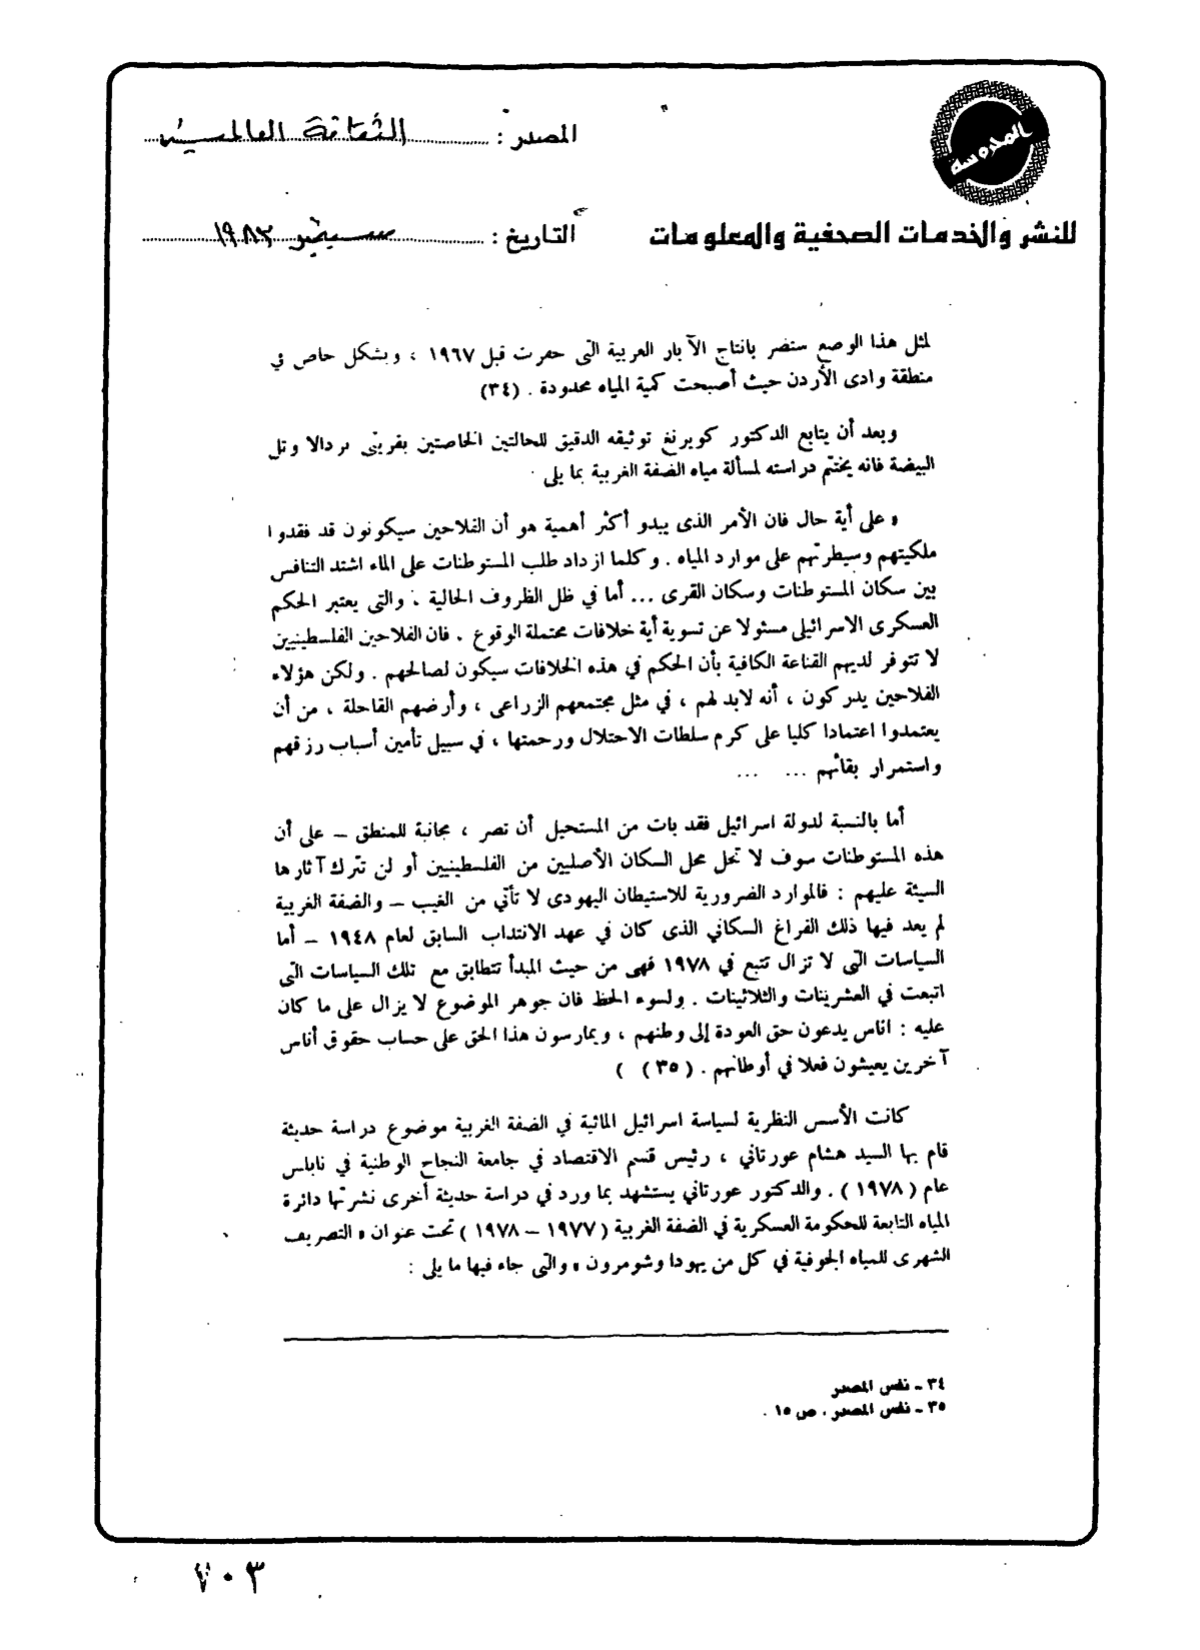 المحروسة
للنشر والخدمات الصحفية والمعلومات
المصدر : الثقافة العالمية
التاريخ : سبتمبر ١٩٨٣
لمثل هذا الوضع ستضر بانتاج الآبار العربية التى حفرت قبل ١٩٦٧ ، وبشكل خاص في
منطقة وادى الأردن حيث أصبحت كمية المياه محدودة . (٣٤)
وبعد أن يتابع الدكتور كويرنغ توثيقه الدقيق للحالتين الخاصتين بقريتى بردالا وتل
البيضة فانه يختتم دراسته لمسألة مياه الضفة الغربية بما يلى
« على أية حال فان الأمر الذى يبدو أكثر أهمية هو أن الفلاحين سيكونون قد فقدوا
ملكيتهم وسيطرتهم على موارد المياه . وكلما ازداد طلب المستوطنات على الماء اشتد التنافس
بين سكان المستوطنات وسكان القرى ... أما في ظل الظروف الحالية ، والتى يعتبر الحكم
العسكرى الاسرائيلى مسئولا عن تسوية أية خلافات محتملة الوقوع . فان الفلاحين الفلسطينيين
لا تتوفر لديهم القناعة الكافية بأن الحكم في هذه الخلافات سيكون لصالحهم . ولكن هؤلاء
الفلاحين يدركون ، أنه لابد لهم ، في مثل مجتمعهم الزراعى ، وأرضهم القاحلة ، من أن
يعتمدوا اعتمادا كليا على كرم سلطات الاحتلال ورحمتها ، في سبيل تأمين أسباب رزقهم
واستمرار بقائهم ... ...
أما بالنسبة لدولة اسرائيل فقد بات من المستحيل أن تصر ، مجانبة للمنطق – على أن
هذه المستوطنات سوف لا تحل محل السكان الأصليين من الفلسطينيين أو لن تترك آثارها
السيئة عليهم : فالموارد الضرورية للاستيطان اليهودى لا تأتي من الغيب – والضفة الغربية
لم يعد فيها ذلك الفراغ السكاني الذى كان في عهد الانتداب السابق لعام ١٩٤٨ – أما
السياسات التى لا تزال تتبع في ١٩٧٨ فهى من حيث المبدأ تتطابق مع تلك السياسات التى
اتبعت في العشرينات والثلاثينات . ولسوء الحظ فان جوهر الموضوع لا يزال على ما كان
عليه : اناس يدعون حق العودة إلى وطنهم ، ويمارسون هذا الحق على حساب حقوق أناس
آخرين يعيشون فعلا في أوطانهم . (٣٥) )
كانت الأسس النظرية لسياسة اسرائيل المائية في الضفة الغربية موضوع دراسة حديثة
قام بها السيد هشام عورتاني ، رئيس قسم الاقتصاد في جامعة النجاح الوطنية في نابلس
عام (١٩٧٨) . والدكتور عورتاني يستشهد بما ورد في دراسة حديثة أخرى نشرتها دائرة
المياه التابعة للحكومة العسكرية في الضفة الغربية (١٩٧٧ – ١٩٧٨) تحت عنوان « التصريف
الشهرى للمياه الجوفية في كل من يهودا وشومرون » والتى جاء فيها ما يلى :
٣٤ – نفس المصدر
٣٥ – نفس المصدر ، ص ١٥ .
٧٠٣